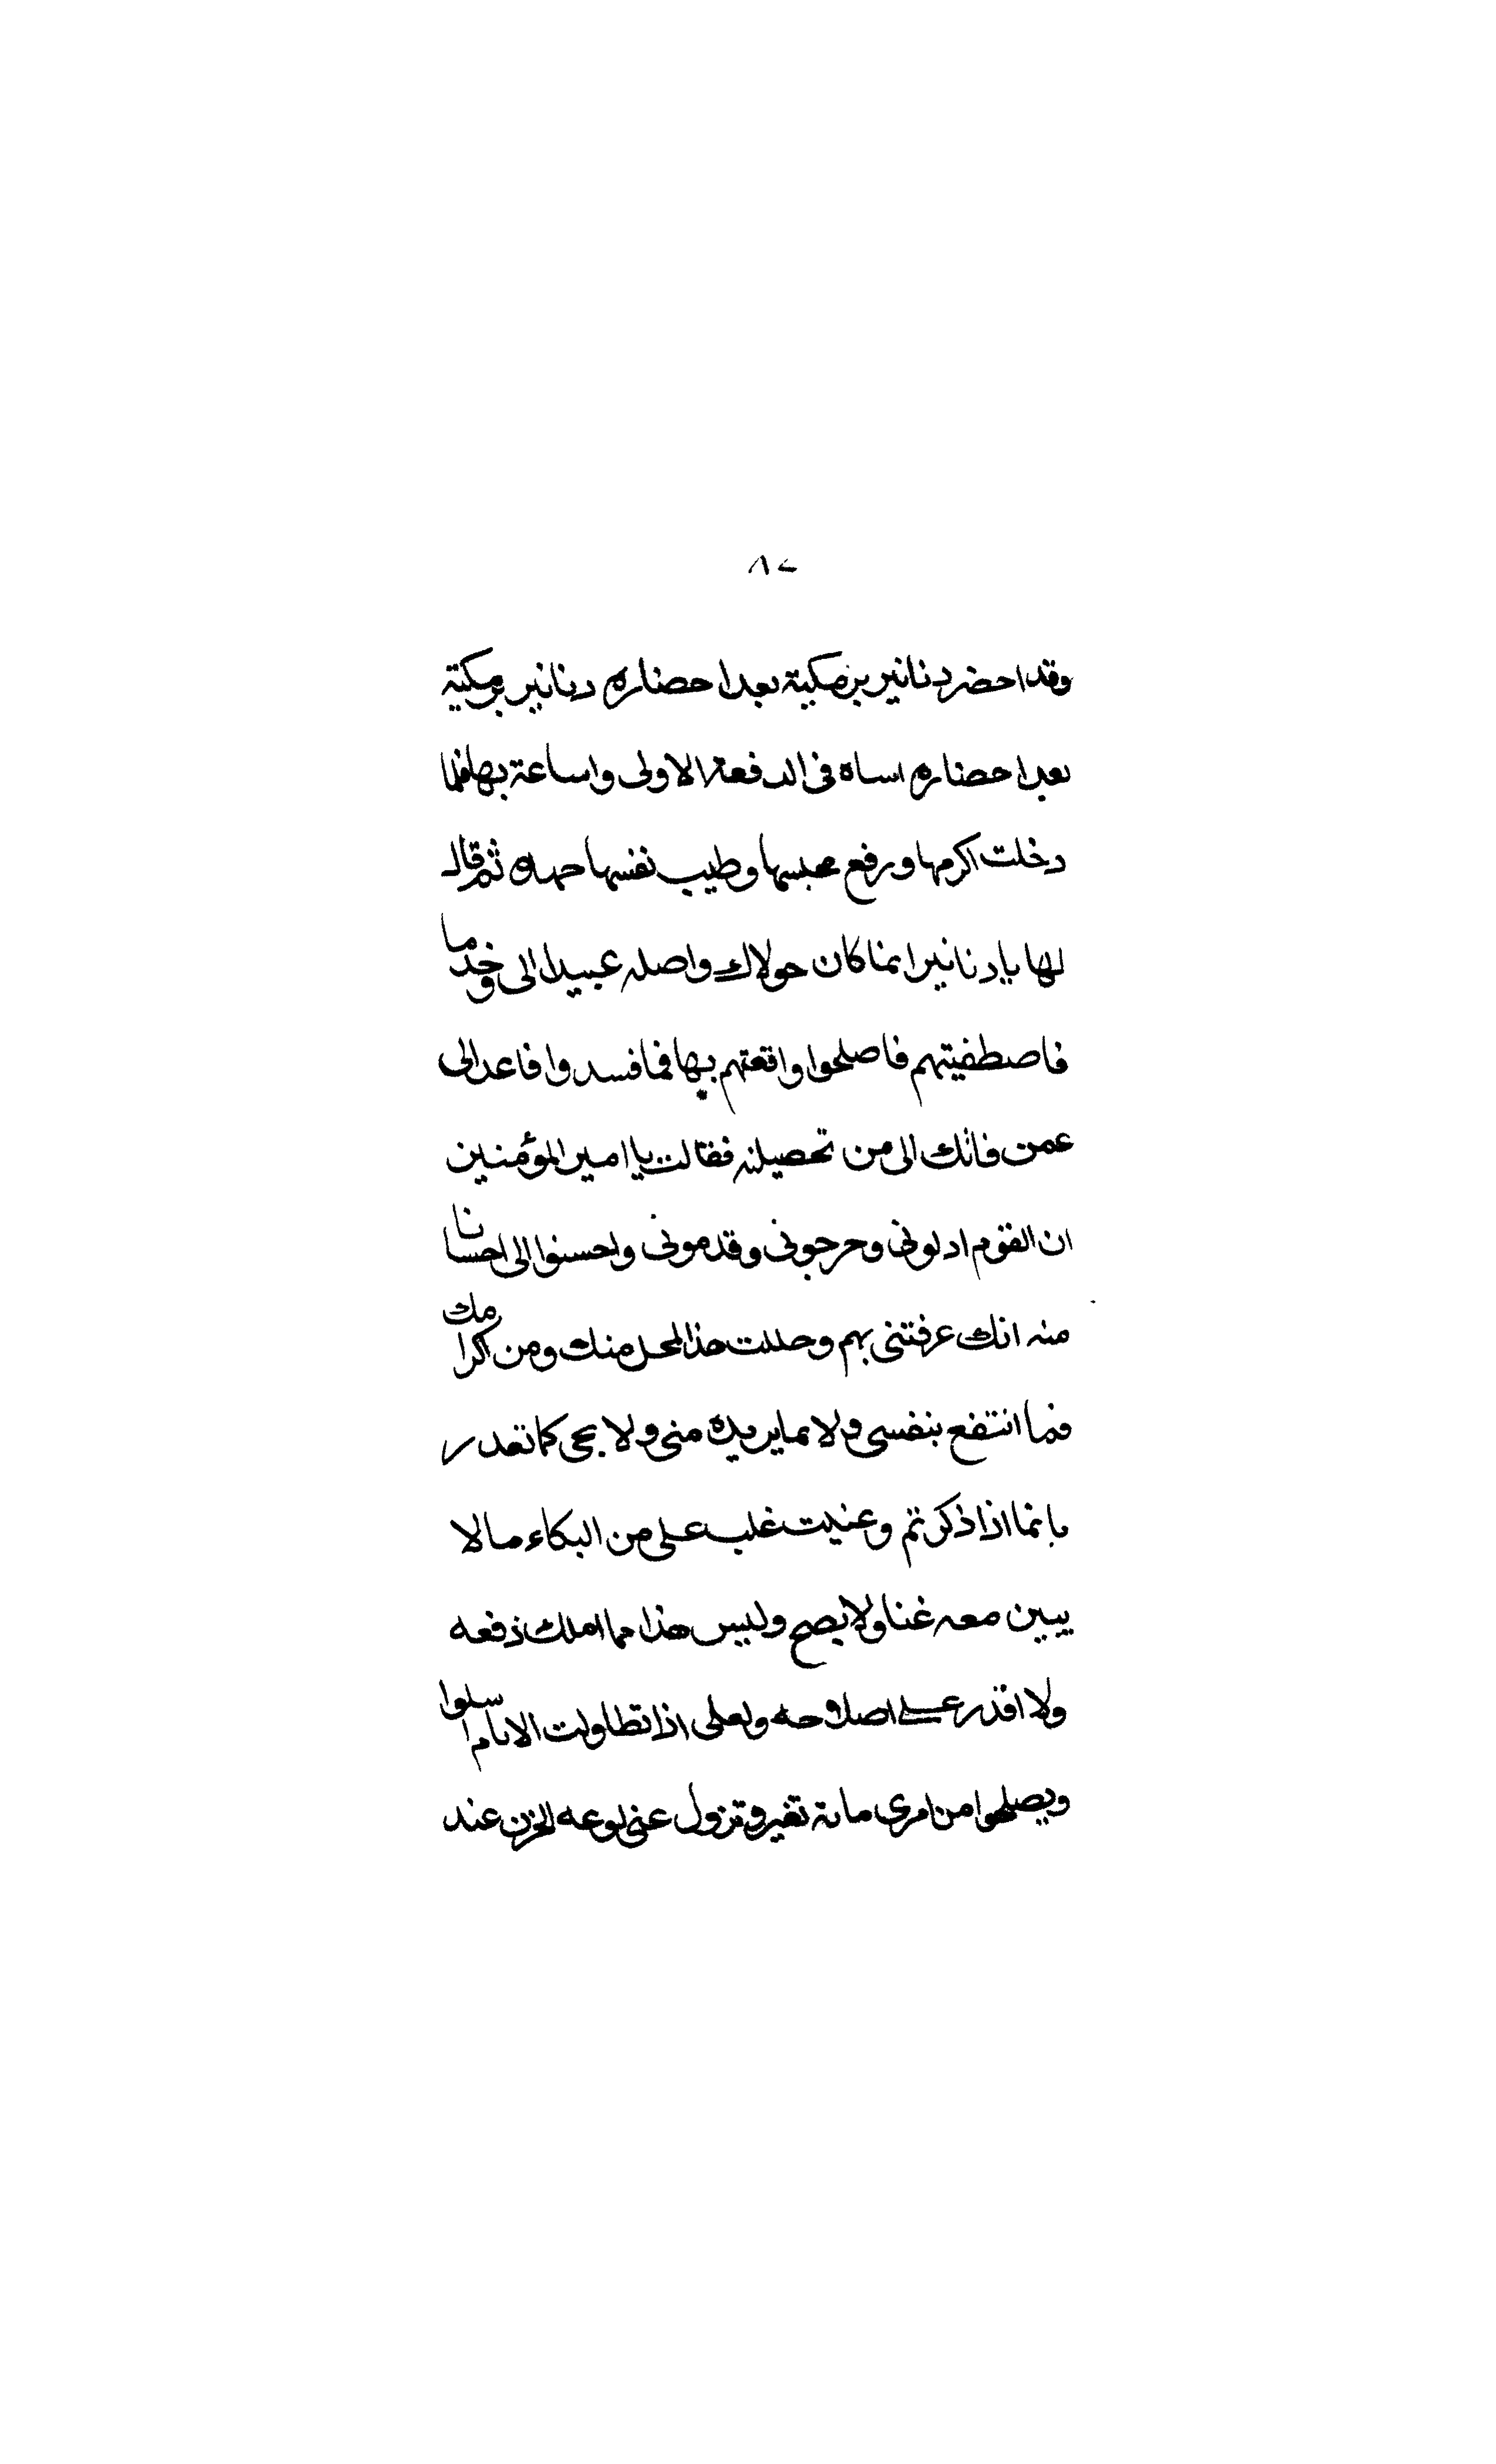 ٨٧
وقد احضر دنانير برمكية بعد احضاره دنانير برمكية
بعد احضاره اساه فى الدفعة الاولى واساعة بها فلما
دخلت اكرمها ورفع مجسها وطيب نفسها جهاه ثم قال
لها يا دنانير انما كان حولاك واصله عبيدا الى وخدما
فاصطفيتهم فاصلحوا واقعتهم بها فما فسدوا فاعد الى
عمن فاتك الى من تحصيلنه فقالت يا امير المؤمنين
ان القوم ادلونى وحرجونى وقدمونى واحسنوا الى احسانا
منه انك عرفتنى بهم وحللت هذا المحل منك ومن اكرامك
فما انتفع بنفسى ولا بما يريده منى ولا يجى كما تقدر
بانما اذا ذكرتم وغنيت غلب على من البكاء ما لا
يبين معه غنا ولا يصح وليس هذا مما املك دفعه
ولا اقدر على اصلاحه ولعلى اذا تطاولت الايام اسلوا
ويصلحوا من امرى ما تغير وتزول عنى لوعه الحزن عند